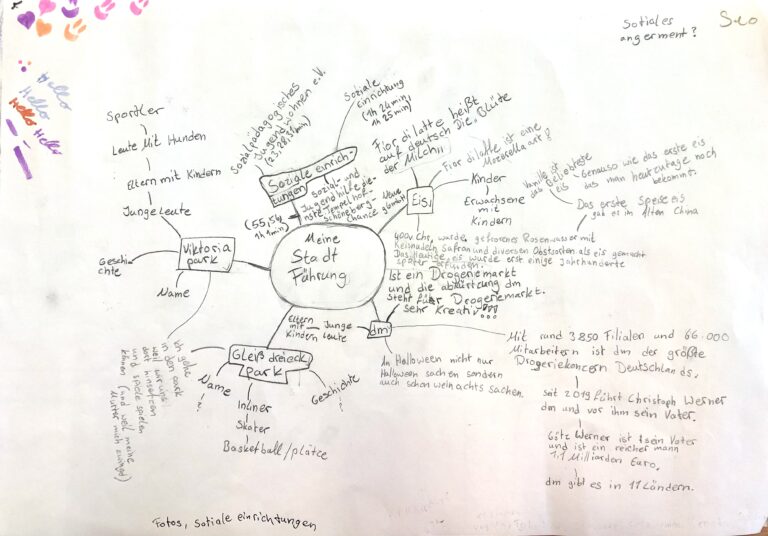 Soziales
angerment?
Seo
Hello
Hello
Hello
Hello
Sportler
Leute Mit Hunden
Eltern mit Kindern
Junge Leute
Viktoria
park
Geschi-
chte
Name
Ich gehe
in den park
weil wir uns
dort hinsetzen
und spiele spielen
können (und weil meine
Mutter mich zwingt)
Sozialpädagogisches
Jugendwohnen e.V.
(23,28,31min)
Soziale
Einrichtung
(1h 24min,
1h 25min)
Soziale einrich-
tungen
Sozial- und
Jugendhilfe die-
nste Tempelhof-
schöneberg-
Neue
Chance
gGmbH
(55,56,
1h 1min)
Meine
Stadt
Führung
Fior di latte heißt
auf deutsch Die Blüte
der Milch
Fior di latte ist eine
Mozerella art!
Eis
Kinder
Erwachsene
mit
Kindern
Vanille ist
das beliebteste
eis
Genauso wie das erste eis
das man heutzutage noch
bekommt.
Das erste Speise eis
gab es im Alten China
400v Chr, wurde, gefrorenes Rosenwasser mit
Reisnadeln Safran und diversen Obstsorten als eis gemacht
Das Heutige eis wurde erst einige Jahrhunderte
später erfunden.
Ist ein Drogeriemarkt
und die abkürtzung dm
steht für Drogeriemarkt.
sehr Kreativ!!!
dm
Eltern
mit
Kindern
Junge
Leute
An Halloween nicht nur
Halloween sachen sondern
auch schon weinachts sachen.
Mit rund 3850 Filialen und 66.000
Mitarbeitern ist dm der größte
Drogeriekoncern Deutschlands.
seit 2019 führt Christoph Werner
dm und vor ihm sein Vater.
Götz Werner ist sein Vater
und ist ein reicher mann
1.1 Milliarden Euro.
dm gibt es in 11 Ländern.
Gleiß dreieck
park
Name
Geschichte
Inliner
Skater
Basketball/plätze
Fotos, sotiale einrichtungen